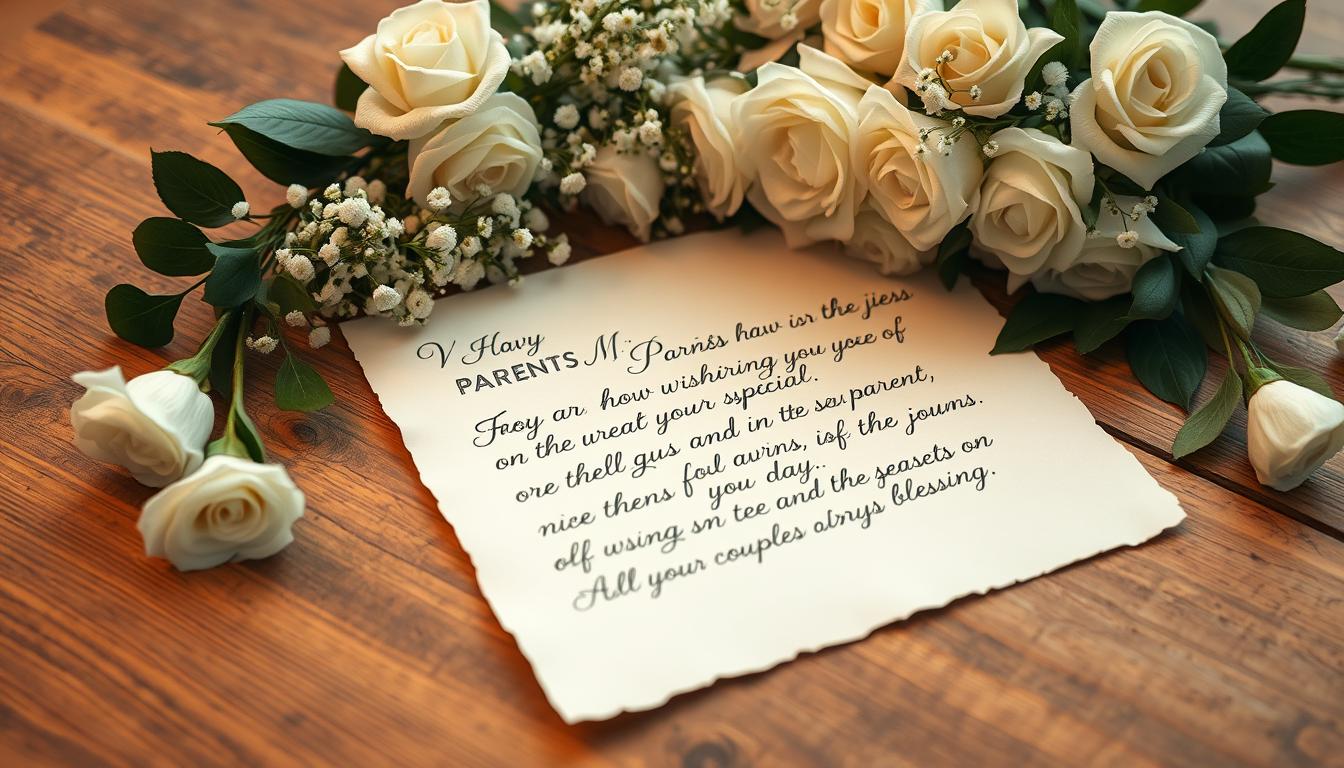 V Havy
PARENTS M. Parnis haw isr the jiess
Froy ar, how wishiring you yœe of
on the ureat your sspicial.
ore thell gus and in tte seu parent,
nice thens fod awins, isf the joums.
olf wsing sn tee and the seasets on
you day..
All your couples alnys blessing.